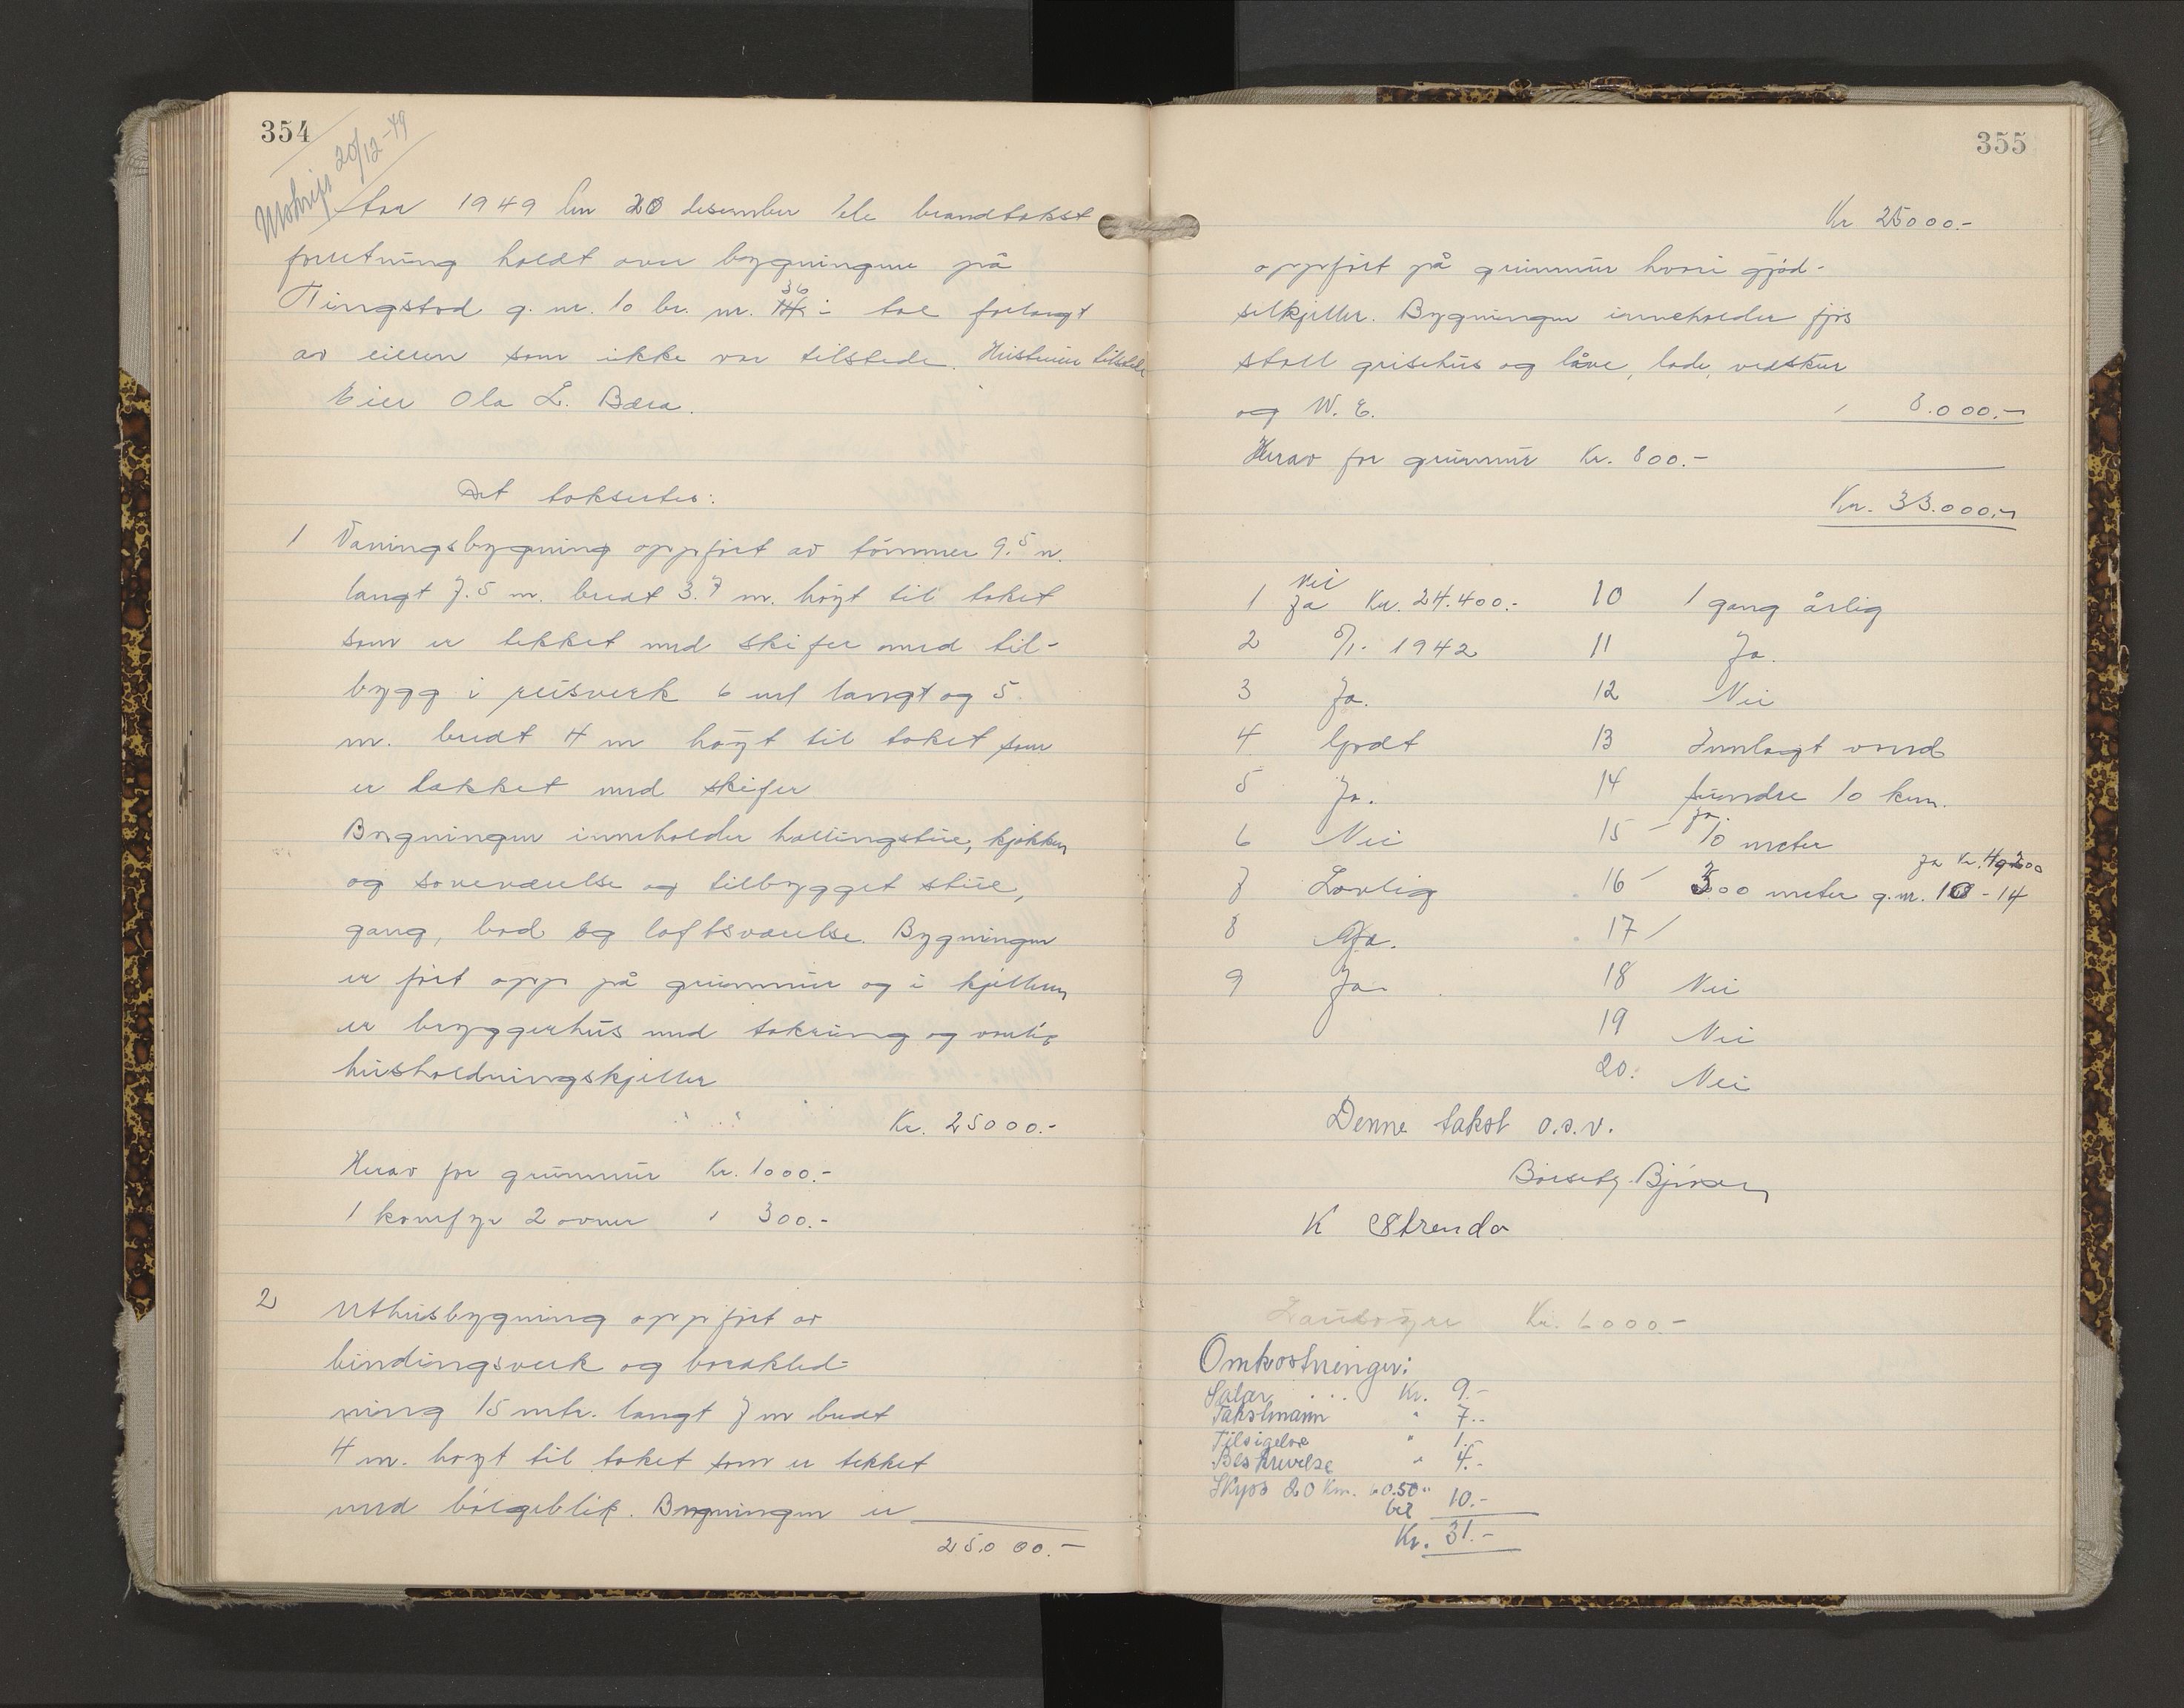 354
Utskrift 20/12-49
Aar 1949 den 20 desember ble brandtakst
forretning holdt over bygningene på
Tingstad g. nr. 10 br. nr. 36 i tal forlangt
av eieren som ikke var tilstede. Hustruen tilstede
Eier Ola L. Bæra.
Det taksertes:
1 Vaningsbygning oppført av tømmer 9.5 m.
langt 7.5 m. bredt 3.7 m. høyt til taket
som er tekket med skifer med til-
bygg i reisverk 6 m langt og 5
m. bredt 4 m høyt til taket som
er takket med skifer
Bygningen inneholder hallingstue, kjøkken
og soveværelse og tilbygget stue,
gang, bod og loftsværelse. Bygningen
er ført opp på grunnmur og i kjelleren
er bryggerhus med takrung og vanlig
husholdningskjeller
Kr. 25000.-
Herav for grunnmur Kr. 1000.-
1 komfyr 2 ovner " 300.-
2 Uthusbygning oppført av
bindingsverk og bordkled-
ning 15 mtr. langt 7 m bredt
4 m. høyt til taket som er tekket
med bølgeblikk. Bygningen er
25000.-
355
Kr 25000.-
oppført på grunnmur hvori gjød-
selkjeller. Bygningen inneholder fjøs
stall grisehus og låve, lade, vedskur
og W. C. " 8.000.-
Herav for grunnmur Kr. 800.-
Kr. 33.000.-
nei
1 Ja Kr. 24.400.- 10 1 gang årlig
2 5/1. 1942 11 Ja.
3 Ja. 12 Nei
4 Godt 13 Innlagt vand
5 Ja. 14 Fundre 10 km.
6 Nei 15 - ja 10 meter
ja Kr. 49200
7 Lovlig 16 - 300 meter g.nr. 10 - 14
8 Ja. 17 /
9 Ja. 18 Nei
19 Nei
20. Nei
Denne takst o.s.v.
K Strenda
Kr. 6000.-
Omkostninger:
Salær ... Kr. 9.-
Takstmann " 7.-
Tilsigelse " 1.-
Beskrivelse " 4.-
Skyss 20 Km. à 0.50 "
bil 10.-
Kr. 31.-